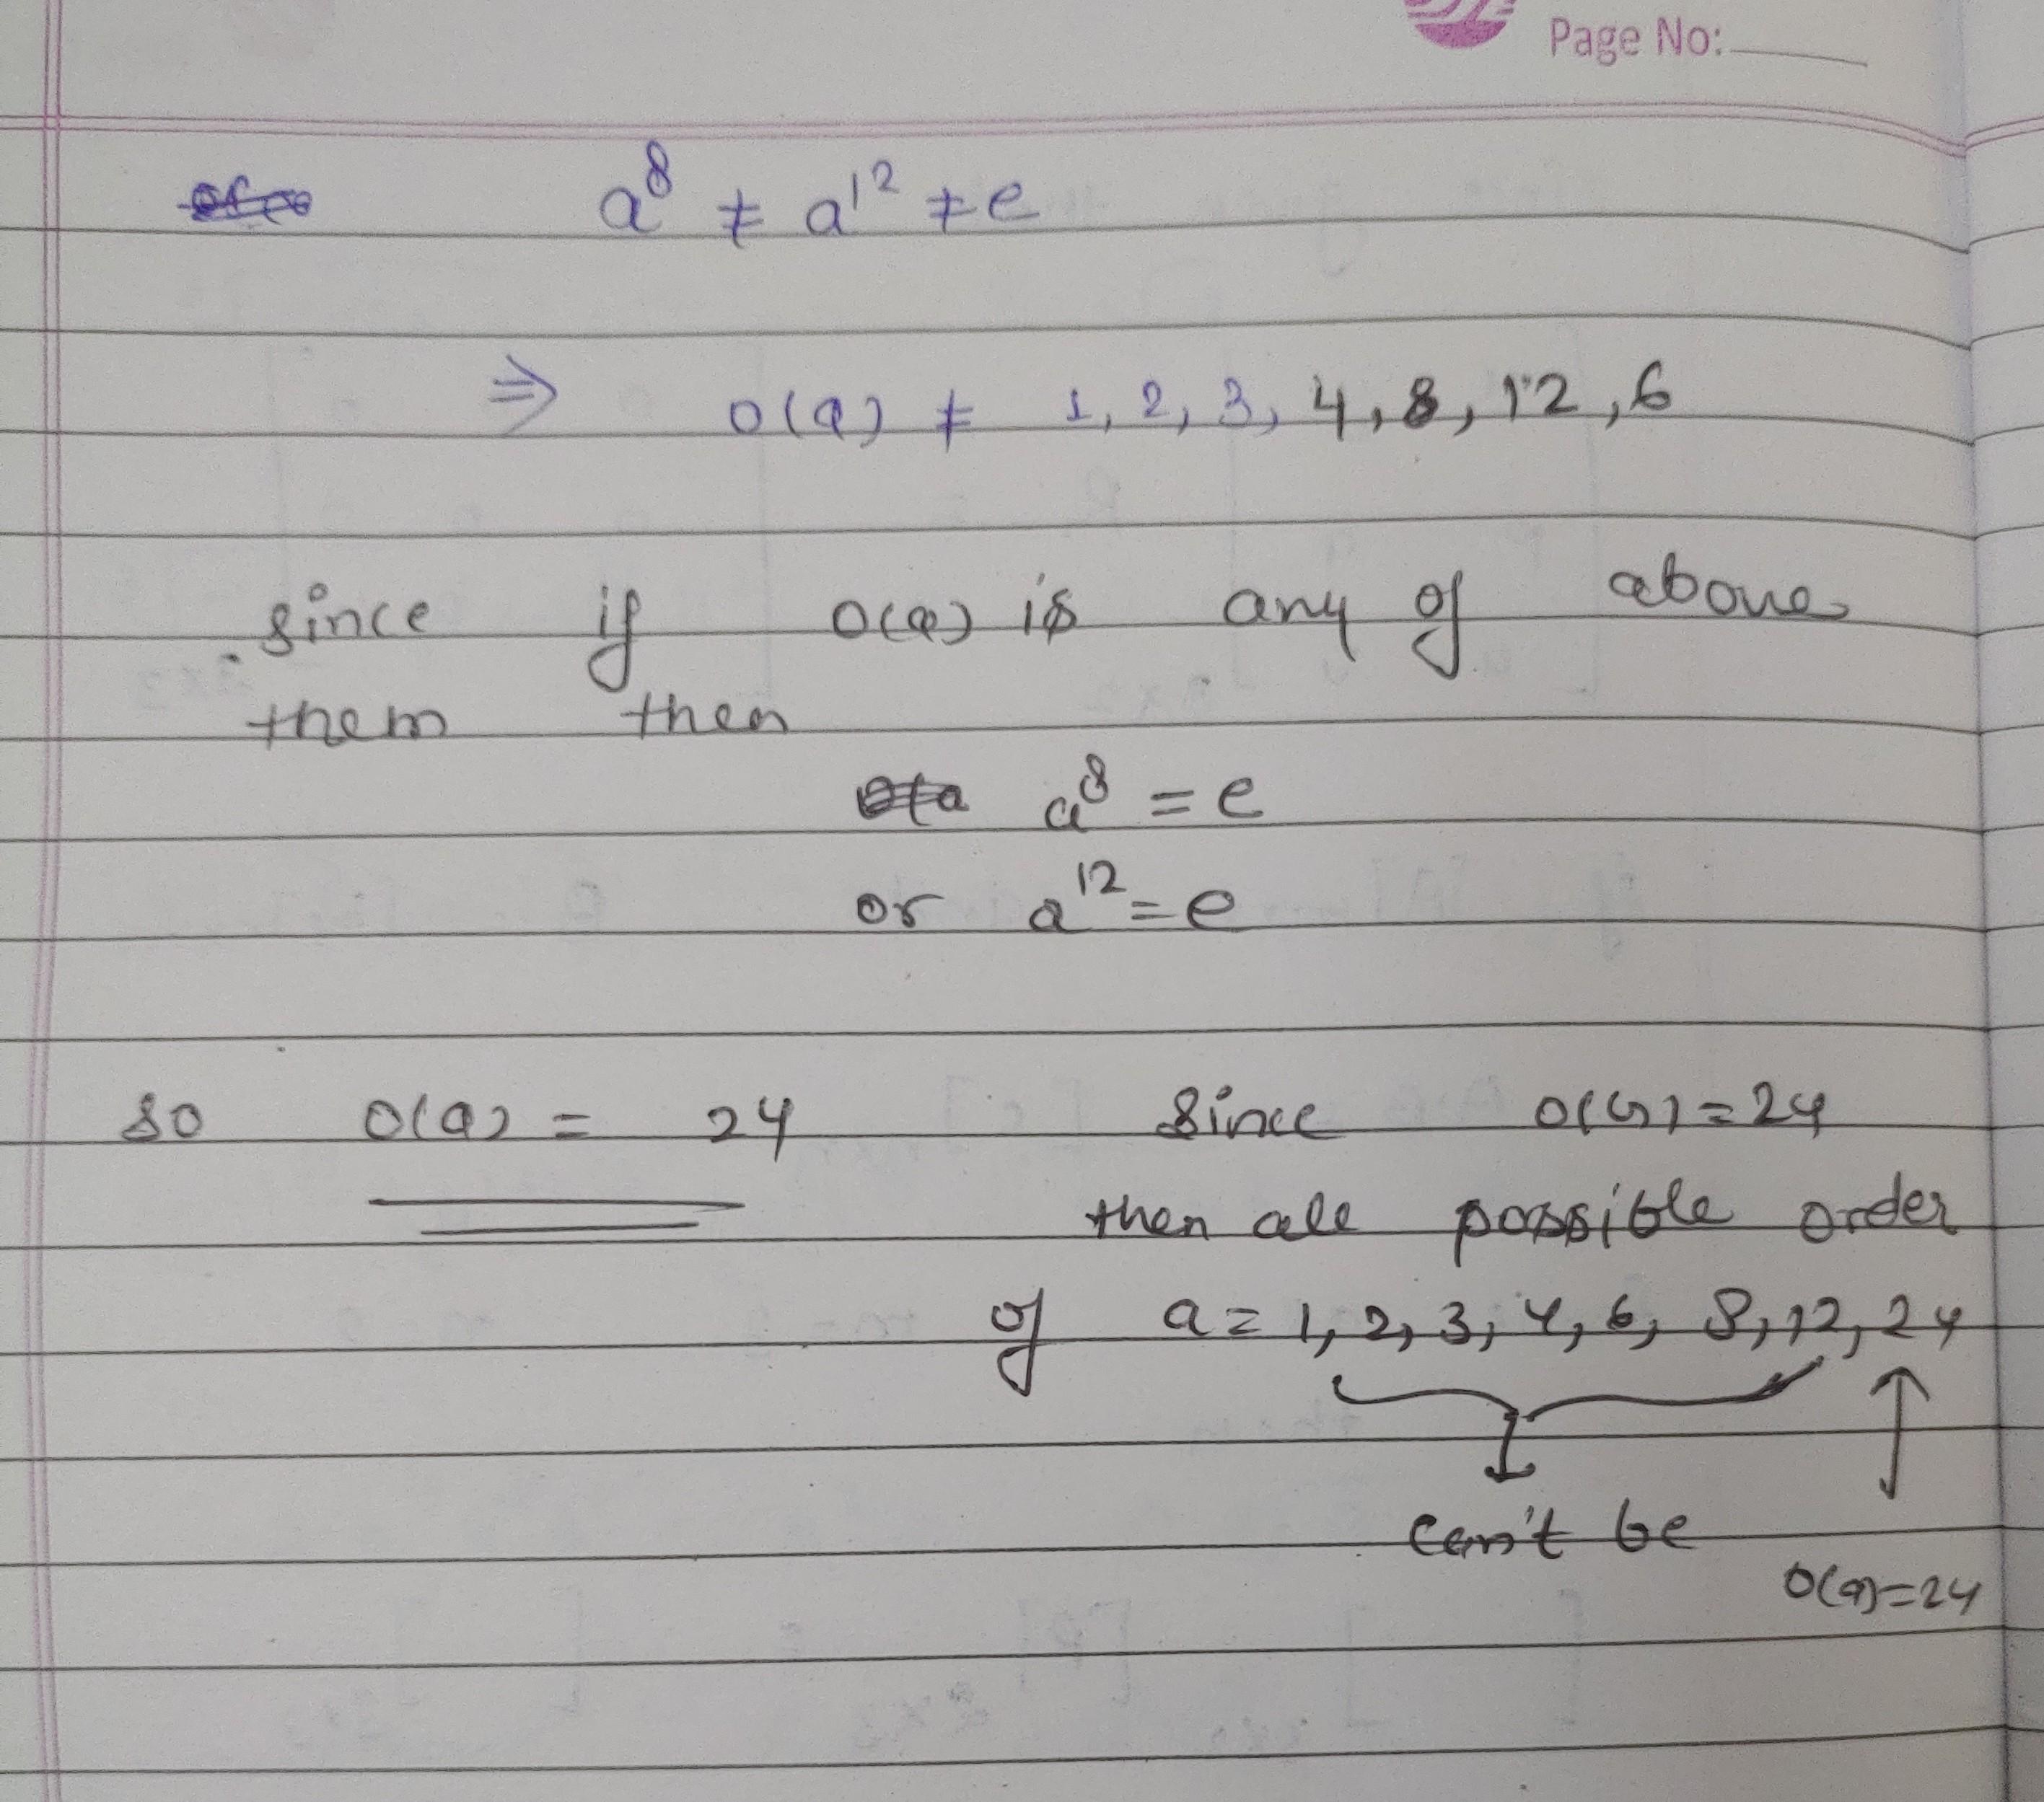 Page No:
a⁸ ≠ a¹² ≠ e
⇒ o(a) ≠ 1, 2, 3, 4, 8, 12, 6
since if o(a) is any of above
them then
a⁸ = e
or a¹² = e
so o(a) = 24 since o(G) = 24
then all possible order
of a = 1, 2, 3, 4, 6, 8, 12, 24
can't be
o(a) = 24